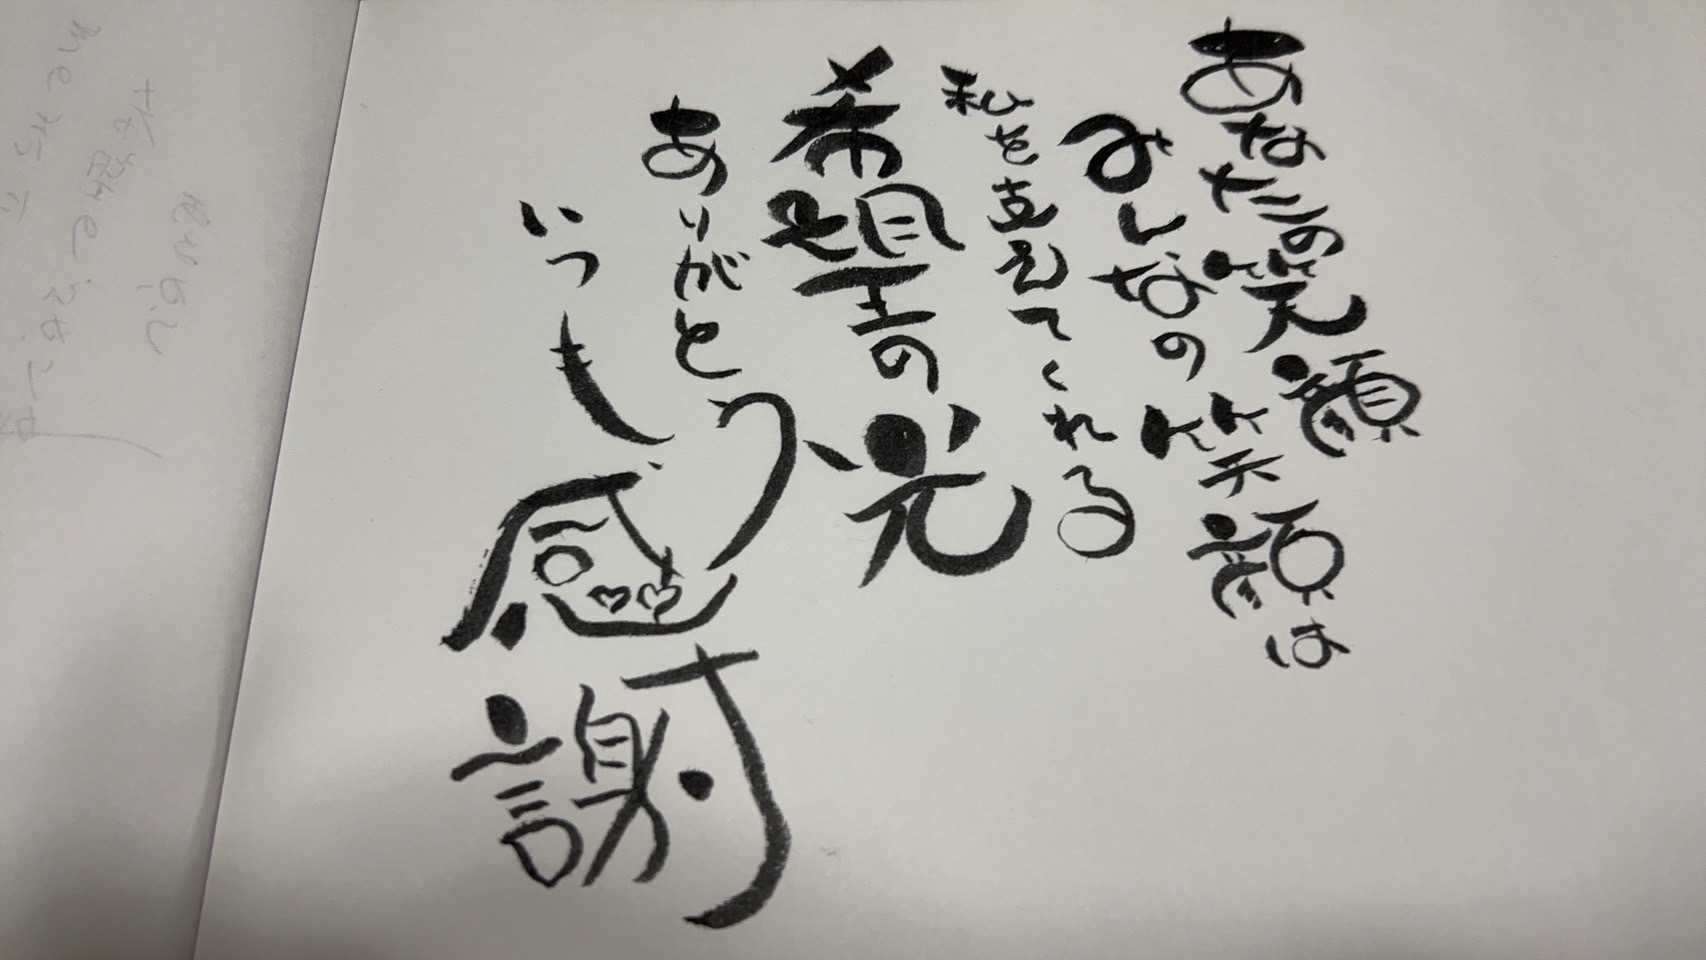 あなたの笑顔
みんなの笑顔は
私を支えてくれる
希望の光
ありがとう
いつも
感謝